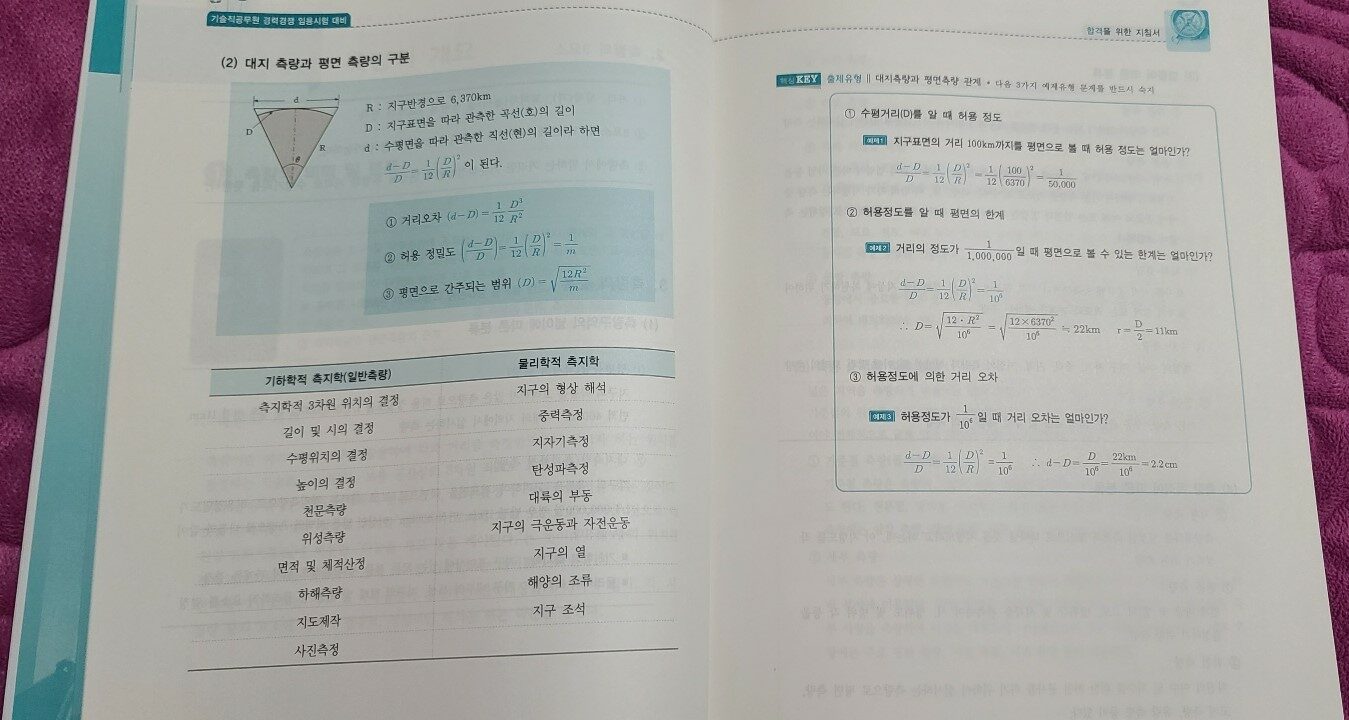 기술직공무원 경력경쟁 임용시험 대비
(2) 대지 측량과 평면 측량의 구분
d
D
R
θ
R : 지구반경으로 6,370km
D : 지구표면을 따라 관측한 곡선(호)의 길이
d : 수평면을 따라 관측한 직선(현)의 길이라 하면
(d-D)/D = 1/12 (D/R)² 이 된다.
① 거리오차 (d-D) = 1/12 D³/R²
② 허용 정밀도 ((d-D)/D) = 1/12 (D/R)² = 1/m
③ 평면으로 간주되는 범위 (D) = √(12R²/m)
기하학적 측지학(일반측량) 물리학적 측지학
측지학적 3차원 위치의 결정 지구의 형상 해석
길이 및 시의 결정 중력측정
수평위치의 결정 지자기측정
높이의 결정 탄성파측정
천문측량 대륙의 부동
위성측량 지구의 극운동과 자전운동
면적 및 체적산정 지구의 열
하해측량 해양의 조류
지도제작 지구 조석
사진측정
합격을 위한 지침서
핵심 KEY 출제유형 || 대지측량과 평면측량 관계 • 다음 3가지 예제유형 문제를 반드시 숙지
① 수평거리(D)를 알 때 허용 정도
예제1 지구표면의 거리 100km까지를 평면으로 볼 때 허용 정도는 얼마인가?
(d-D)/D = 1/12 (D/R)² = 1/12 (100/6370)² = 1/50,000
② 허용정도를 알 때 평면의 한계
예제2 거리의 정도가 1/1,000,000 일 때 평면으로 볼 수 있는 한계는 얼마인가?
(d-D)/D = 1/12 (D/R)² = 1/10⁶
∴ D = √(12·R²/10⁶) = √(12×6370²/10⁶) ≒ 22km r = D/2 = 11km
③ 허용정도에 의한 거리 오차
예제3 허용정도가 1/10⁶ 일 때 거리 오차는 얼마인가?
(d-D)/D = 1/12 (D/R)² = 1/10⁶ ∴ d-D = D/10⁶ = 22km/10⁶ = 2.2cm